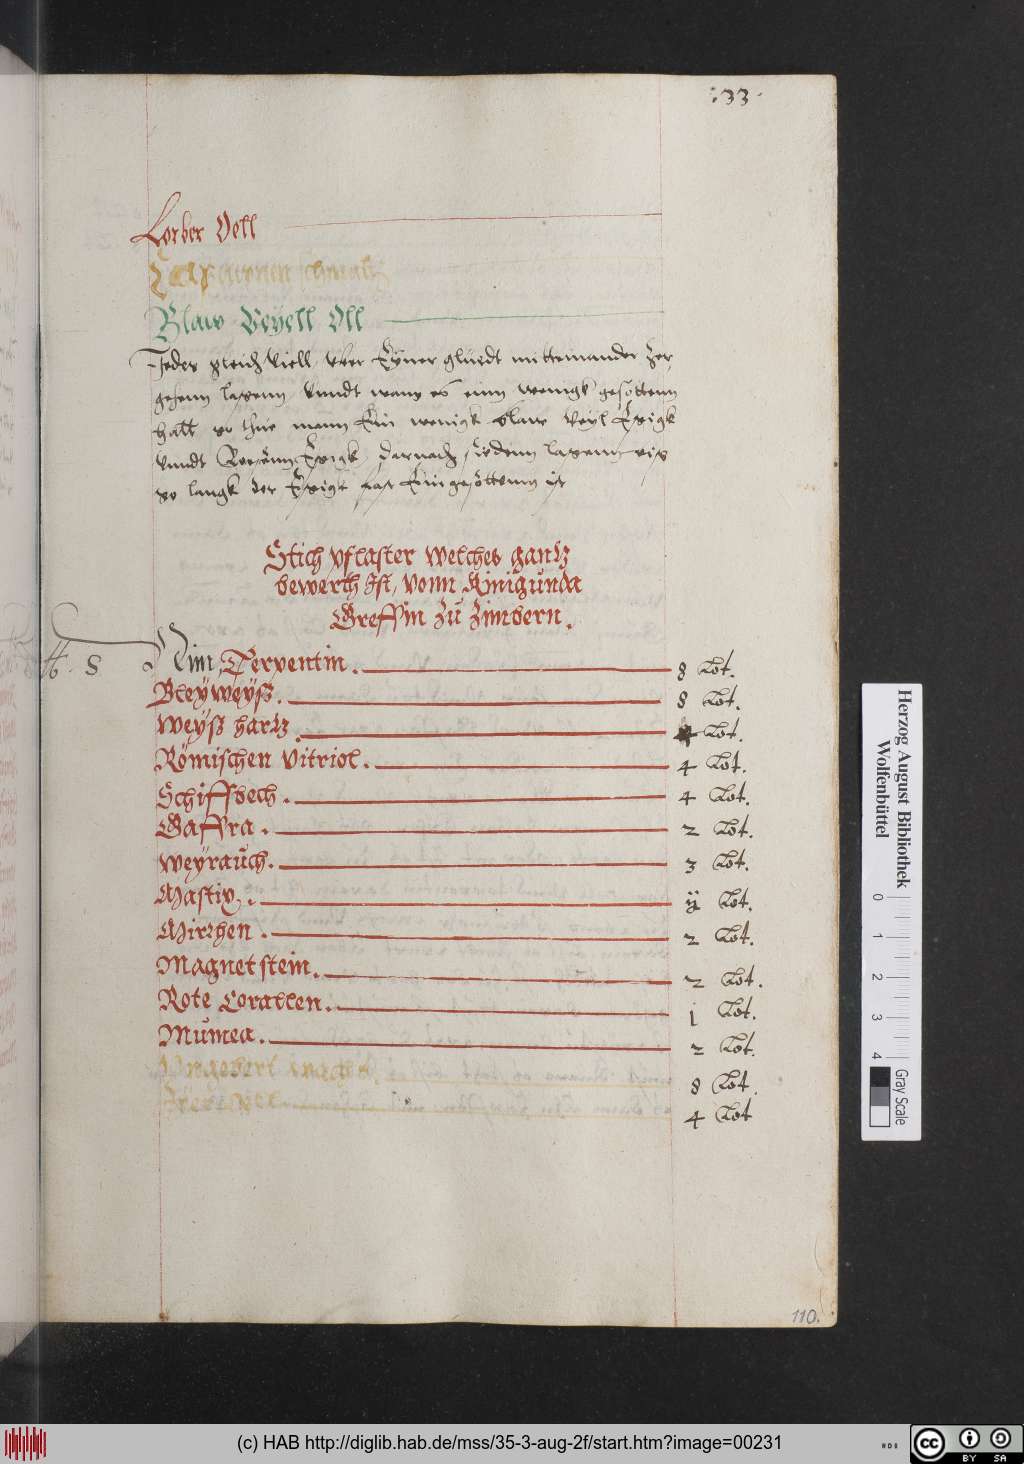 :33·
Lorber Oell
Cappaunen schmaltz
Blaw Veyell Oll
Jedes gleich viell, vber Eyner gluedt mitteinander zer,
gehenn lassenn, vnndt wann es einn wenigk gesottenn
hatt so thue mann Ein wenigk blaw Veyl Essigk
vnndt Rosenn Essigk, darnach siedenn lassenn, biss
so langk der Essigk fast Eingesottenn ist
Stich pflaster welches gantz
bewerth Ist, vonn Kunigunda
Greffin zu Zimbern.
℔. S Nim Terpentin. 8 Lot.
Bleyweyß. 8 Lot.
Weyß hartz. 4 Lot.
Römischen Vitriol. 4 Lot.
Schiffbech. 4 Lot.
Gaffra. 2 Lot.
Weyrauch. 3 Lot.
Mastix. ij Lot.
Mirrhen. 2 Lot.
Magnetstein. 2 Lot.
Rote Corallen. j Lot.
Mumea. 2 Lot.
Vngebert wachs. 8 Lot.
4 Lot
110.
Herzog August Bibliothek
Wolfenbüttel
0 1 2 3 4
Gray Scale
(c) HAB http://diglib.hab.de/mss/35-3-aug-2f/start.htm?image=00231
cc BY SA